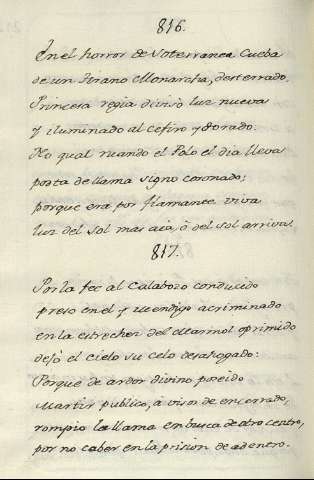 816.
En el horror de Soterranea Cueba
de un tirano Monarcha, desterrado.
Princesa regia divisò luz nueva
y iluminado al Cefiro y dorado.
No qual quando el Polo el dia lleva
posta de llama signo coronado;
porque era por flamante viva
luz del sol mas acà, ò del sol arriva.
817.
Por la fee al Calabozo conducido
preso en el y mendigo acriminado
en la estrechez del Marmol oprimido
dejò el Cielo su celo desahogado:
Porque de ardor divino poseido
Martir publico, à visos de encerrado,
rompio la llama en busca de otro centro,
por no caber en la prision de adentro.